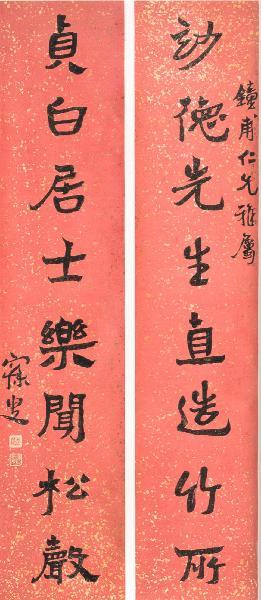 玅德先生直造竹所
甫仁兄雅屬
貞白居士樂聞松聲
寐叟